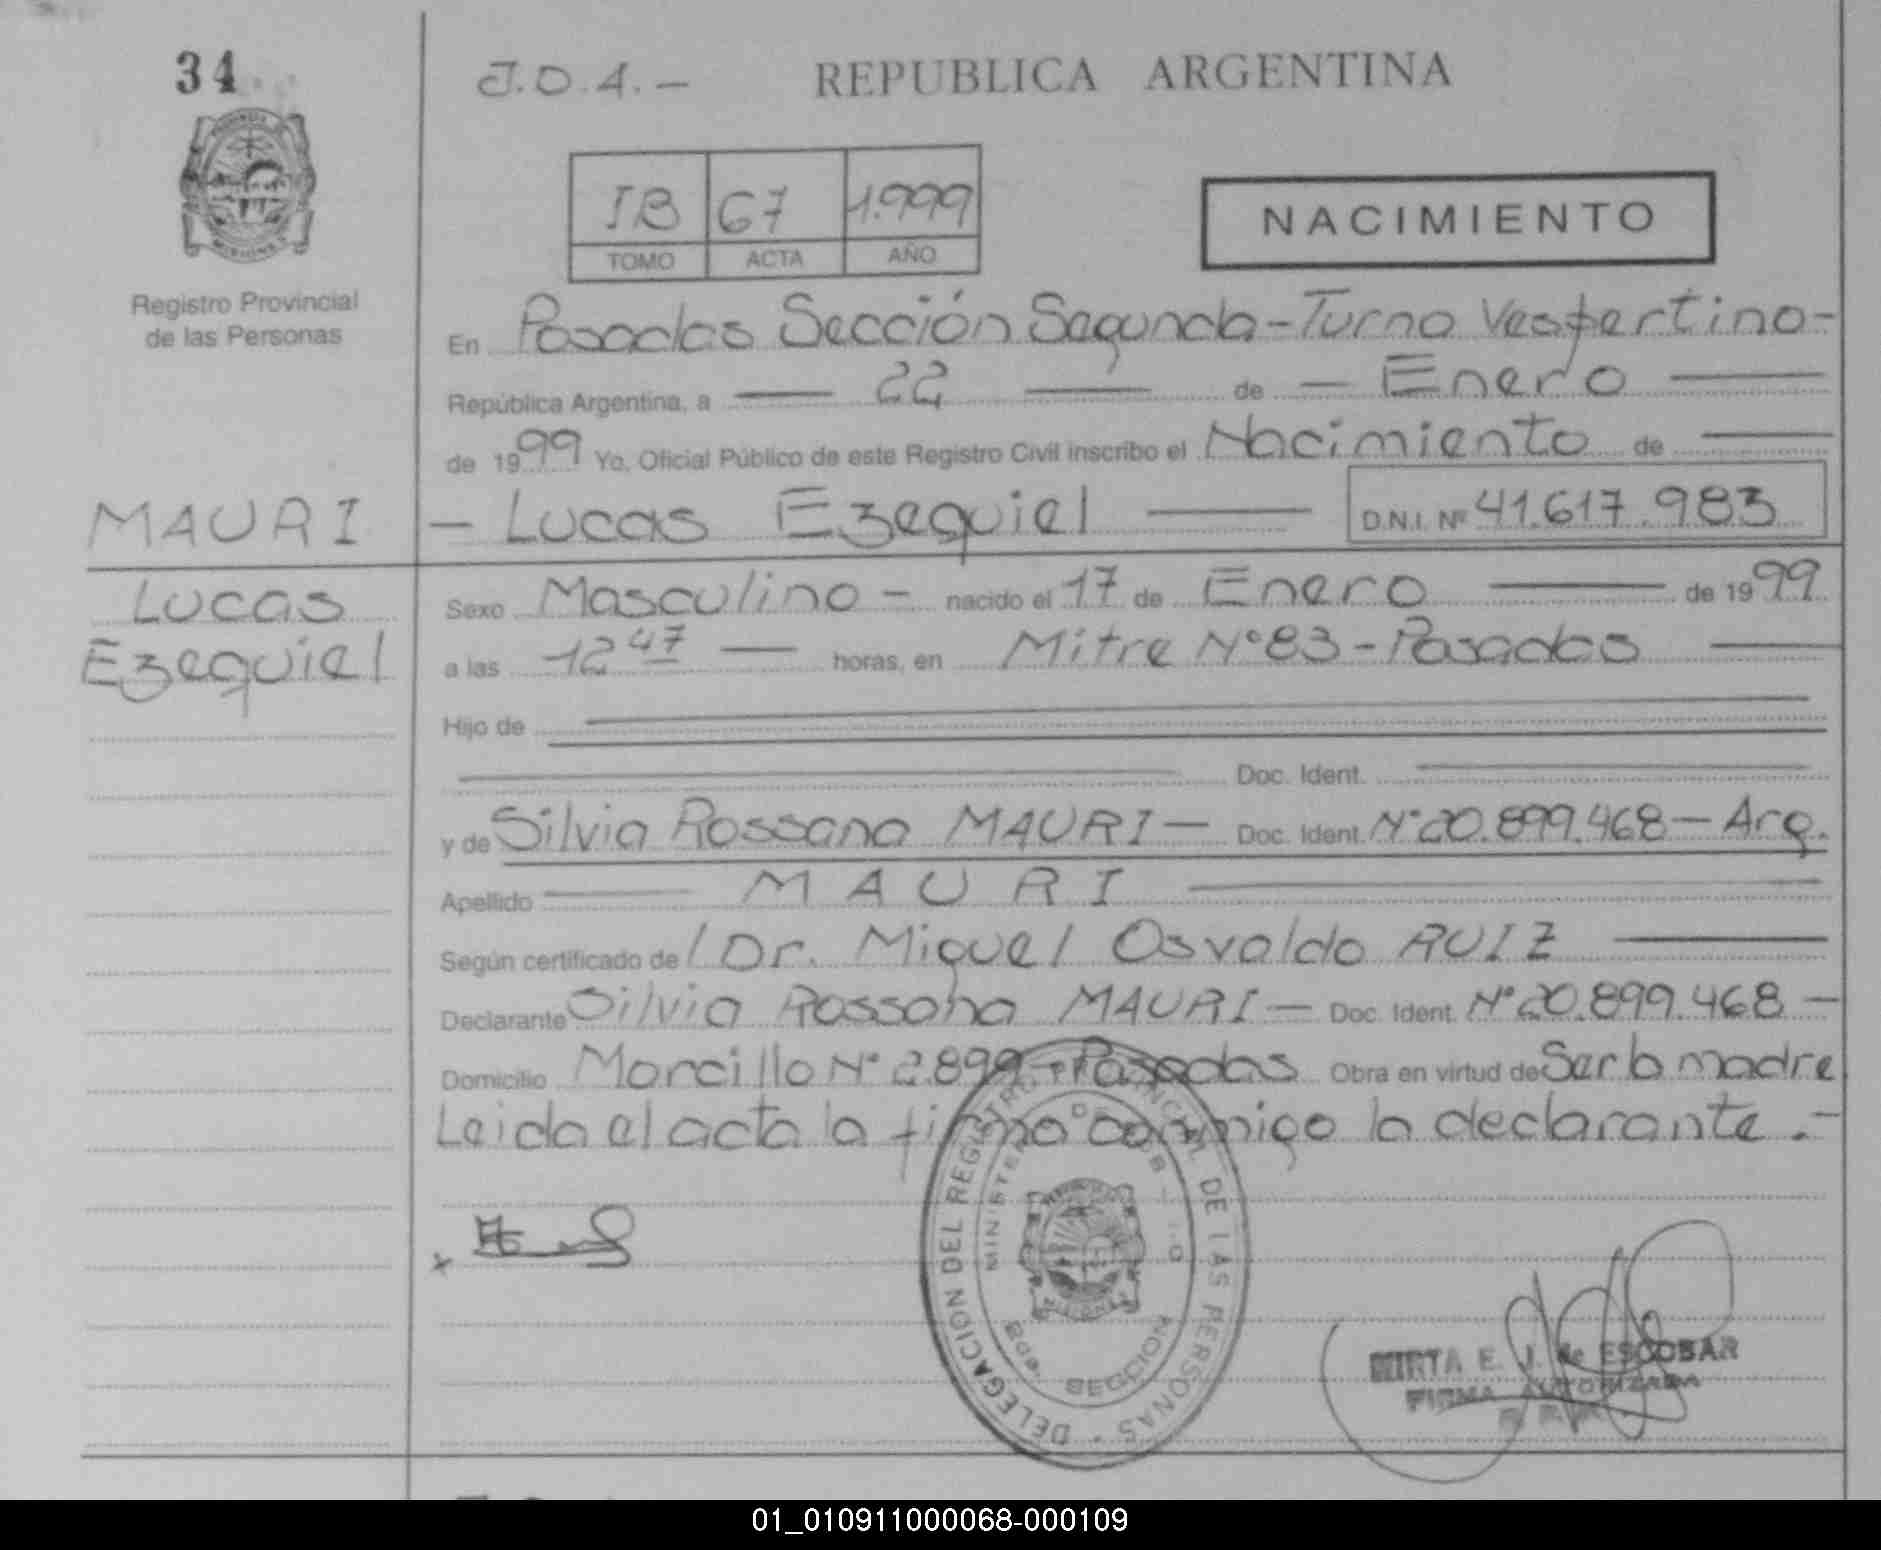 34
J.O.A.-
REPUBLICA ARGENTINA
IB 67 1.999
TOMO ACTA AÑO
NACIMIENTO
MISIONES
Registro Provincial
de las Personas
En Posadas Sección Segunda-Turno Vespertino-
República Argentina, a — 22 — de — Enero —
de 1999 Yo, Oficial Público de este Registro Civil inscribo el Nacimiento de —
MAURI — Lucas Ezequiel — D.N.I. Nº 41.617.983
Lucas
Ezequiel
Sexo Masculino - nacido el 17 de Enero — de 1999
a las 12 47 — horas, en Mitre Nº 83 - Posadas —
Hijo de
Doc. Ident.
y de Silvia Rossana MAURI — Doc. Ident. Nº 20.899.468 — Arg.
Apellido — MAURI —
Según certificado de l Dr. Miguel Osvaldo RUIZ —
Declarante Silvia Rossana MAURI — Doc. Ident. Nº 20.899.468 —
Domicilio Morcillo Nº 2.899 - Posadas Obra en virtud de Ser la madre
Leida el acta la firma conmigo la declarante.-
DELEGACION DEL REGISTRO PROVINCIAL DE LAS PERSONAS
MINISTERIO DE GOB
MISIONES
SECCION
MIRTA E. J. de ESCOBAR
FIRMA AUTORIZADA
01_010911000068-000109